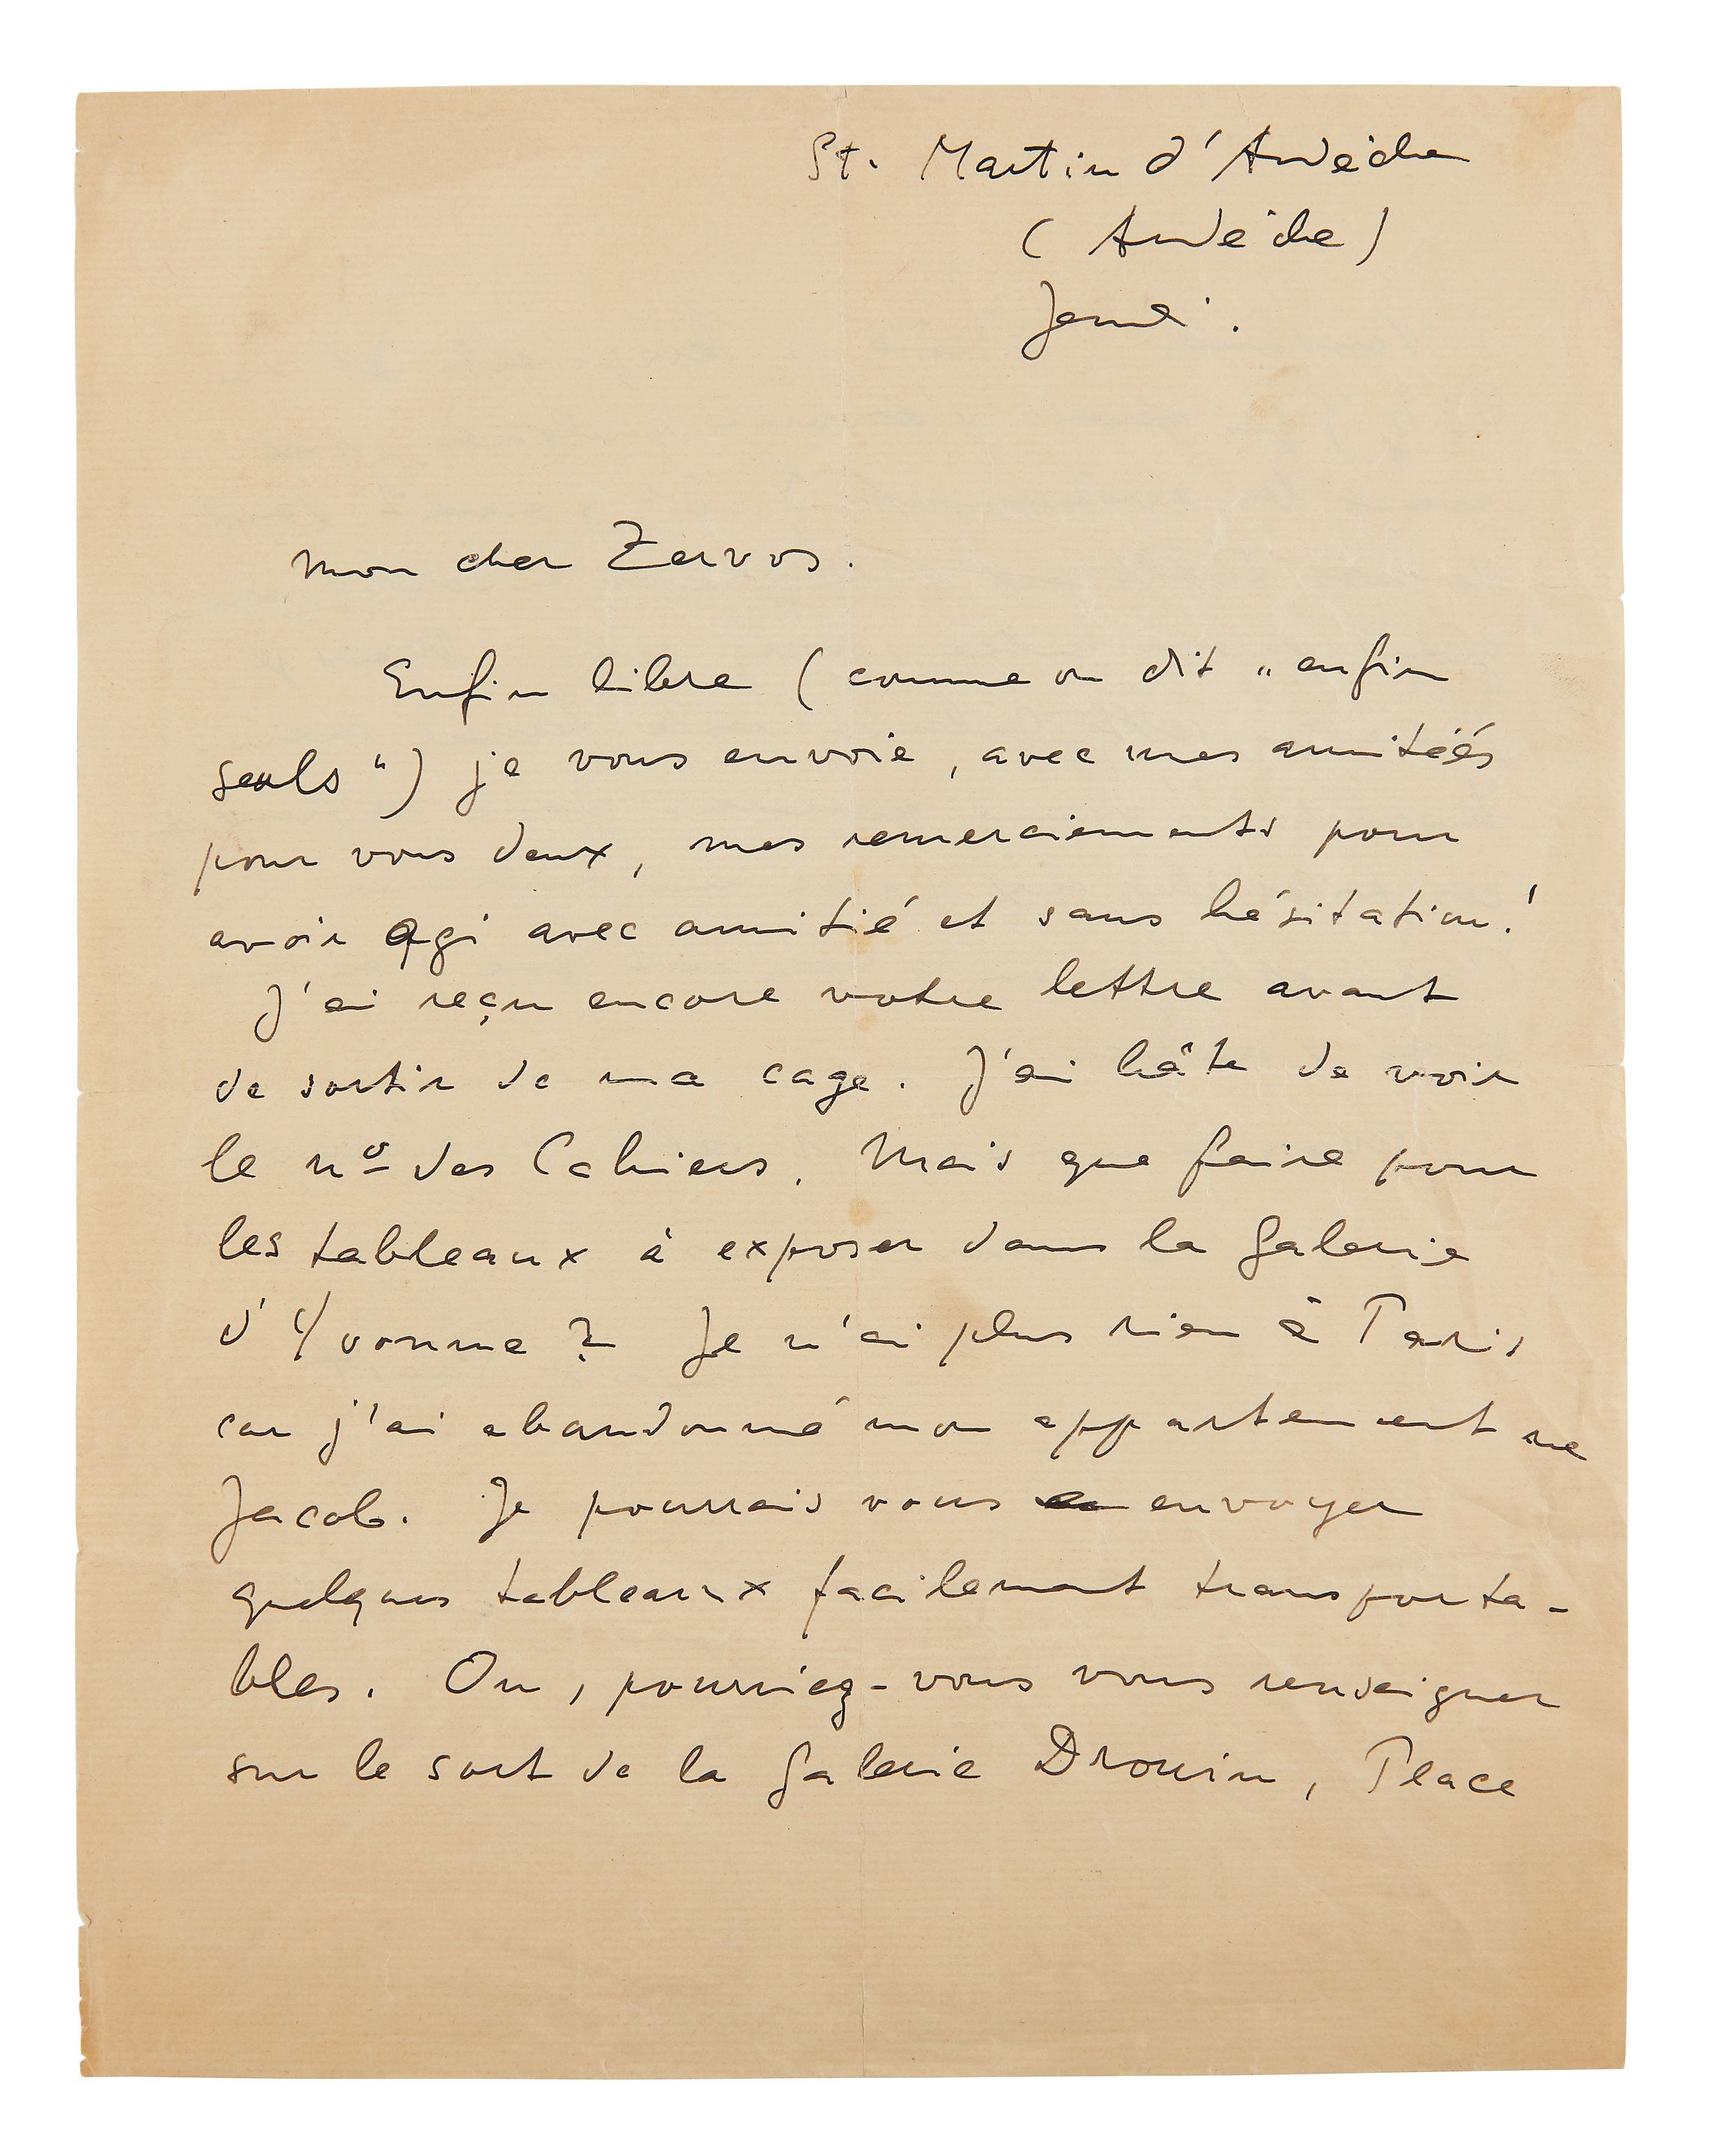 St. Martin d'Ardèche
(Ardèche)
Jeudi.
Mon cher Zervos.
Enfin libre (comme on dit „enfin
seuls") je vous envoie, avec mes amitiés
pour vous deux, mes remerciements pour
avoir agi avec amitié et sans hésitation!
J'ai reçu encore votre lettre avant
de sortir de ma cage. J'ai hâte de voir
le nº des Cahiers. Mais que faire pour
les tableaux à exposer dans la Galerie
d'Yvonne? Je n'ai plus rien à Paris
car j'ai abandonné mon appartement rue
Jacob. Je pourrais vous envoyer
quelques tableaux facilement transporta-
bles. Ou, pourriez-vous vous renseigner
sur le sort de la Galerie Drouin, Place